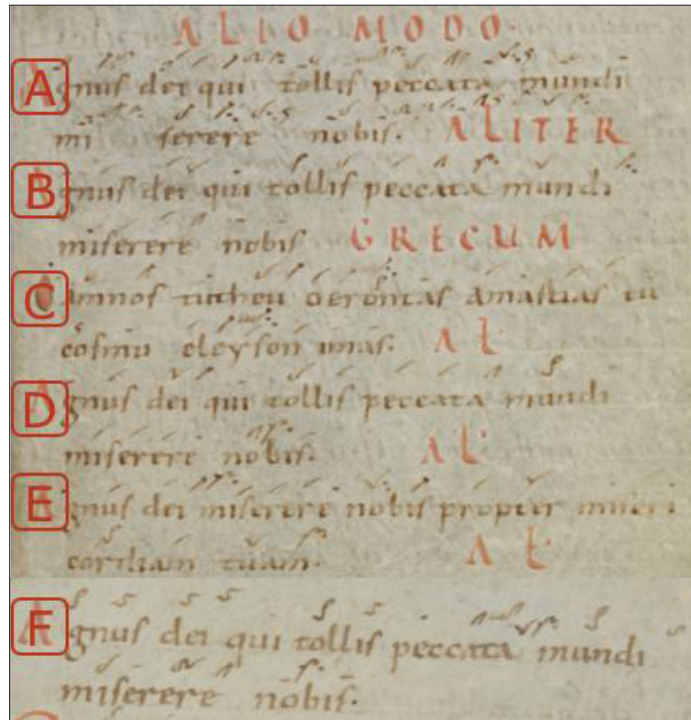 ALIO MODO
A gnus dei qui tollis peccata mundi
mi serere nobis. ALITER
B gnus dei qui tollis peccata mundi
miserere nobis GRECUM
C amnos tutheu oerontas amastias tu
cosmu eleyson imas. AL
D gnus dei qui tollis peccata mundi
miserere nobis. AL
E gnus dei miserere nobis propter miseri
cordiam tuam. AL
F gnus dei qui tollis peccata mundi
miserere nobis.